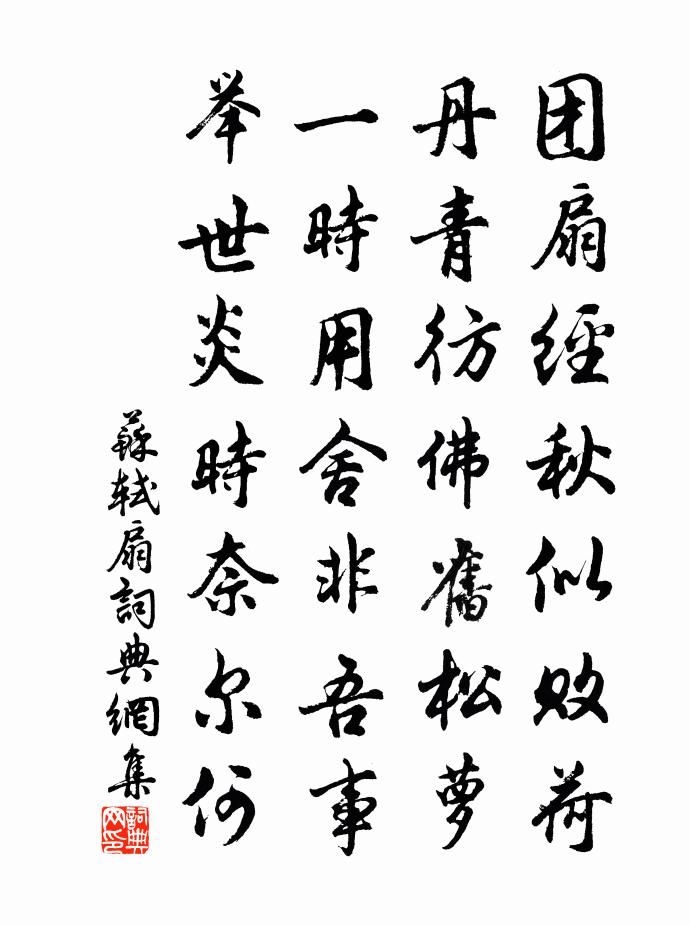 团扇經秋似败荷
丹青彷佛舊松萝
一時用舍非吾事
举世炎時奈尔何
蘇轼扇詞典網集
詞典网印